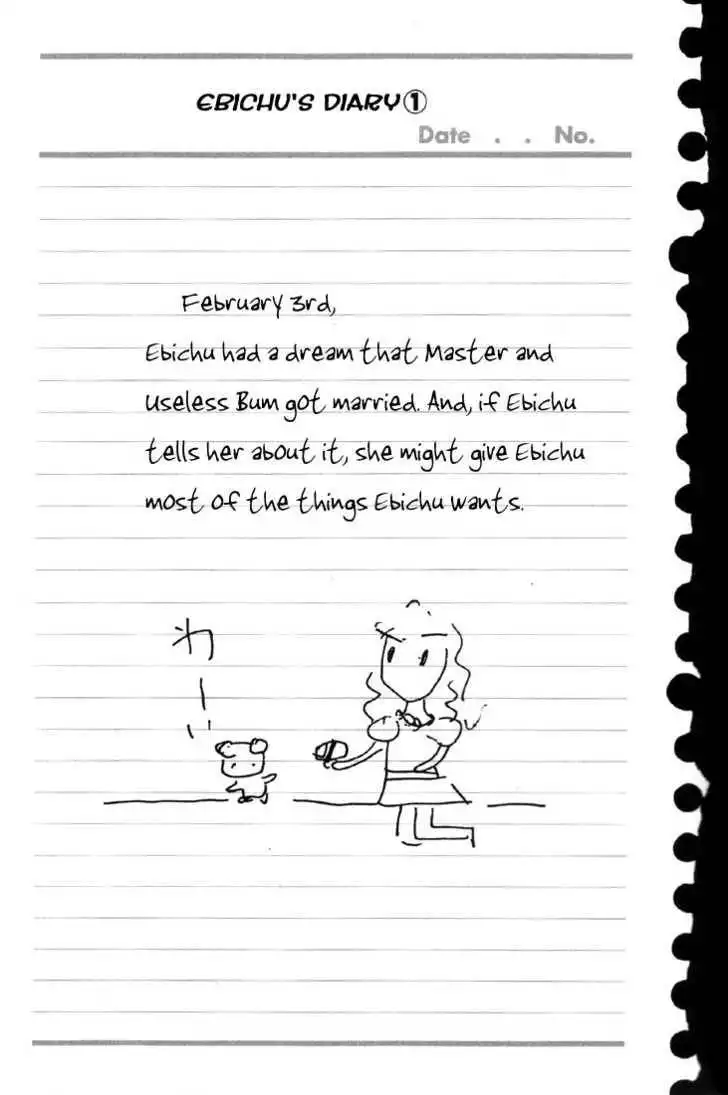 EBICHU'S DIARY①
Date . . No.
February 3rd,
Ebichu had a dream that Master and
Useless Bum got married. And, if Ebichu
tells her about it, she might give Ebichu
most of the things Ebichu wants.
わー